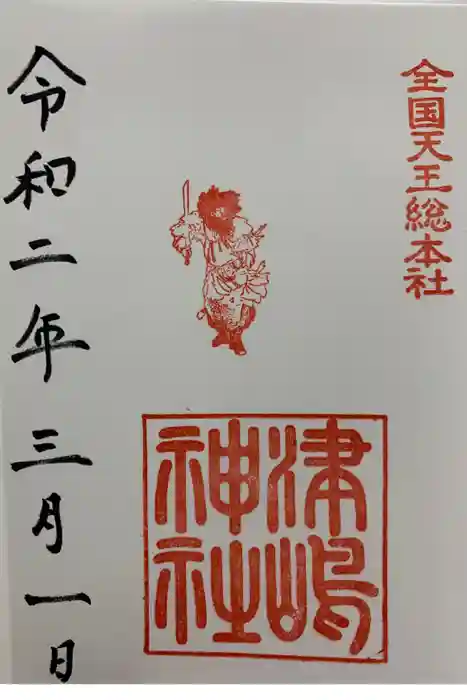 全国天王総本社
津嶋神社
令和二年三月一日